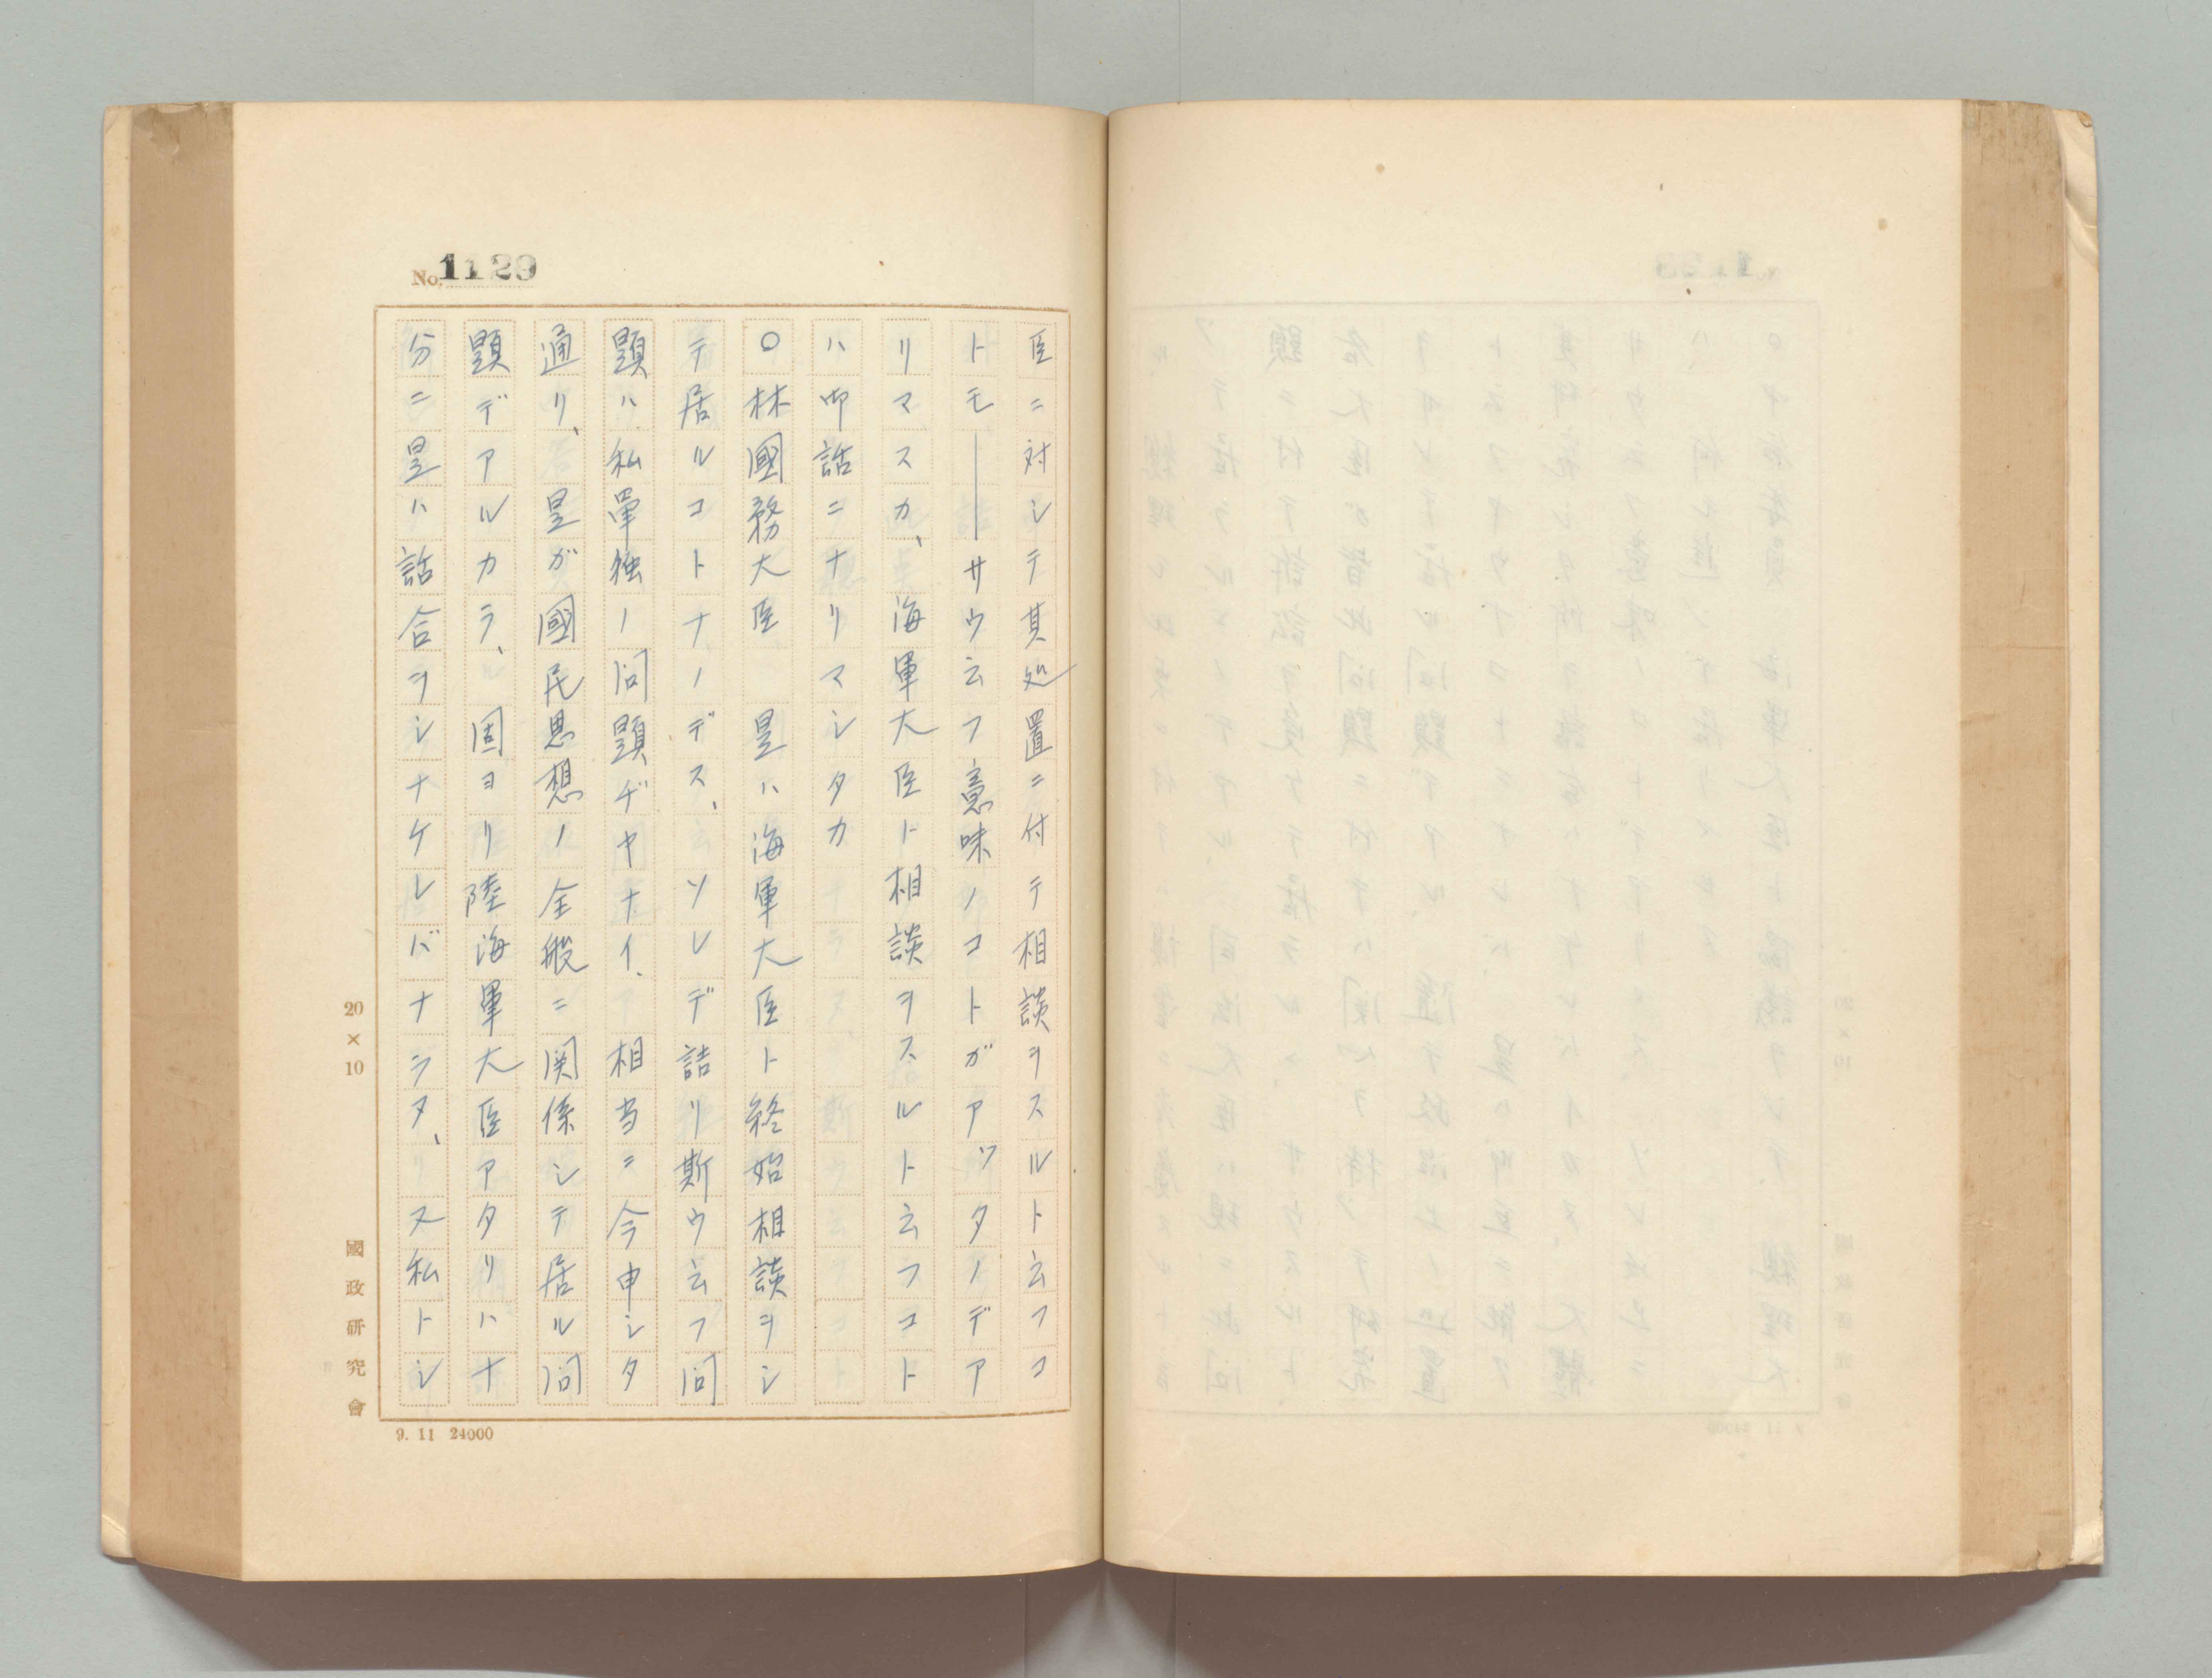 No. 1129
臣ニ対シテ其処置ニ付テ相談ヲスルト云フコ
トモ――サウ云フ意味ノコトガアツタノデア
リマスカ、海軍大臣ト相談ヲスルト云フコト
ハ御話ニナリマシタカ
○林國務大臣 是ハ海軍大臣ト終始相談ヲシ
テ居ルコトナノデス、ソレデ詰リ斯ウ云フ問
題ハ私單独ノ問題ヂヤナイ、相当ニ今申シタ
通リ、是ガ國民思想ノ全般ニ関係シテ居ル問
題デアルカラ、固ヨリ陸海軍大臣アタリハナ
分ニ是ハ話合ヲシナケレバナラヌ、又私トシ
20×10
國政研究會
9. 11 24000